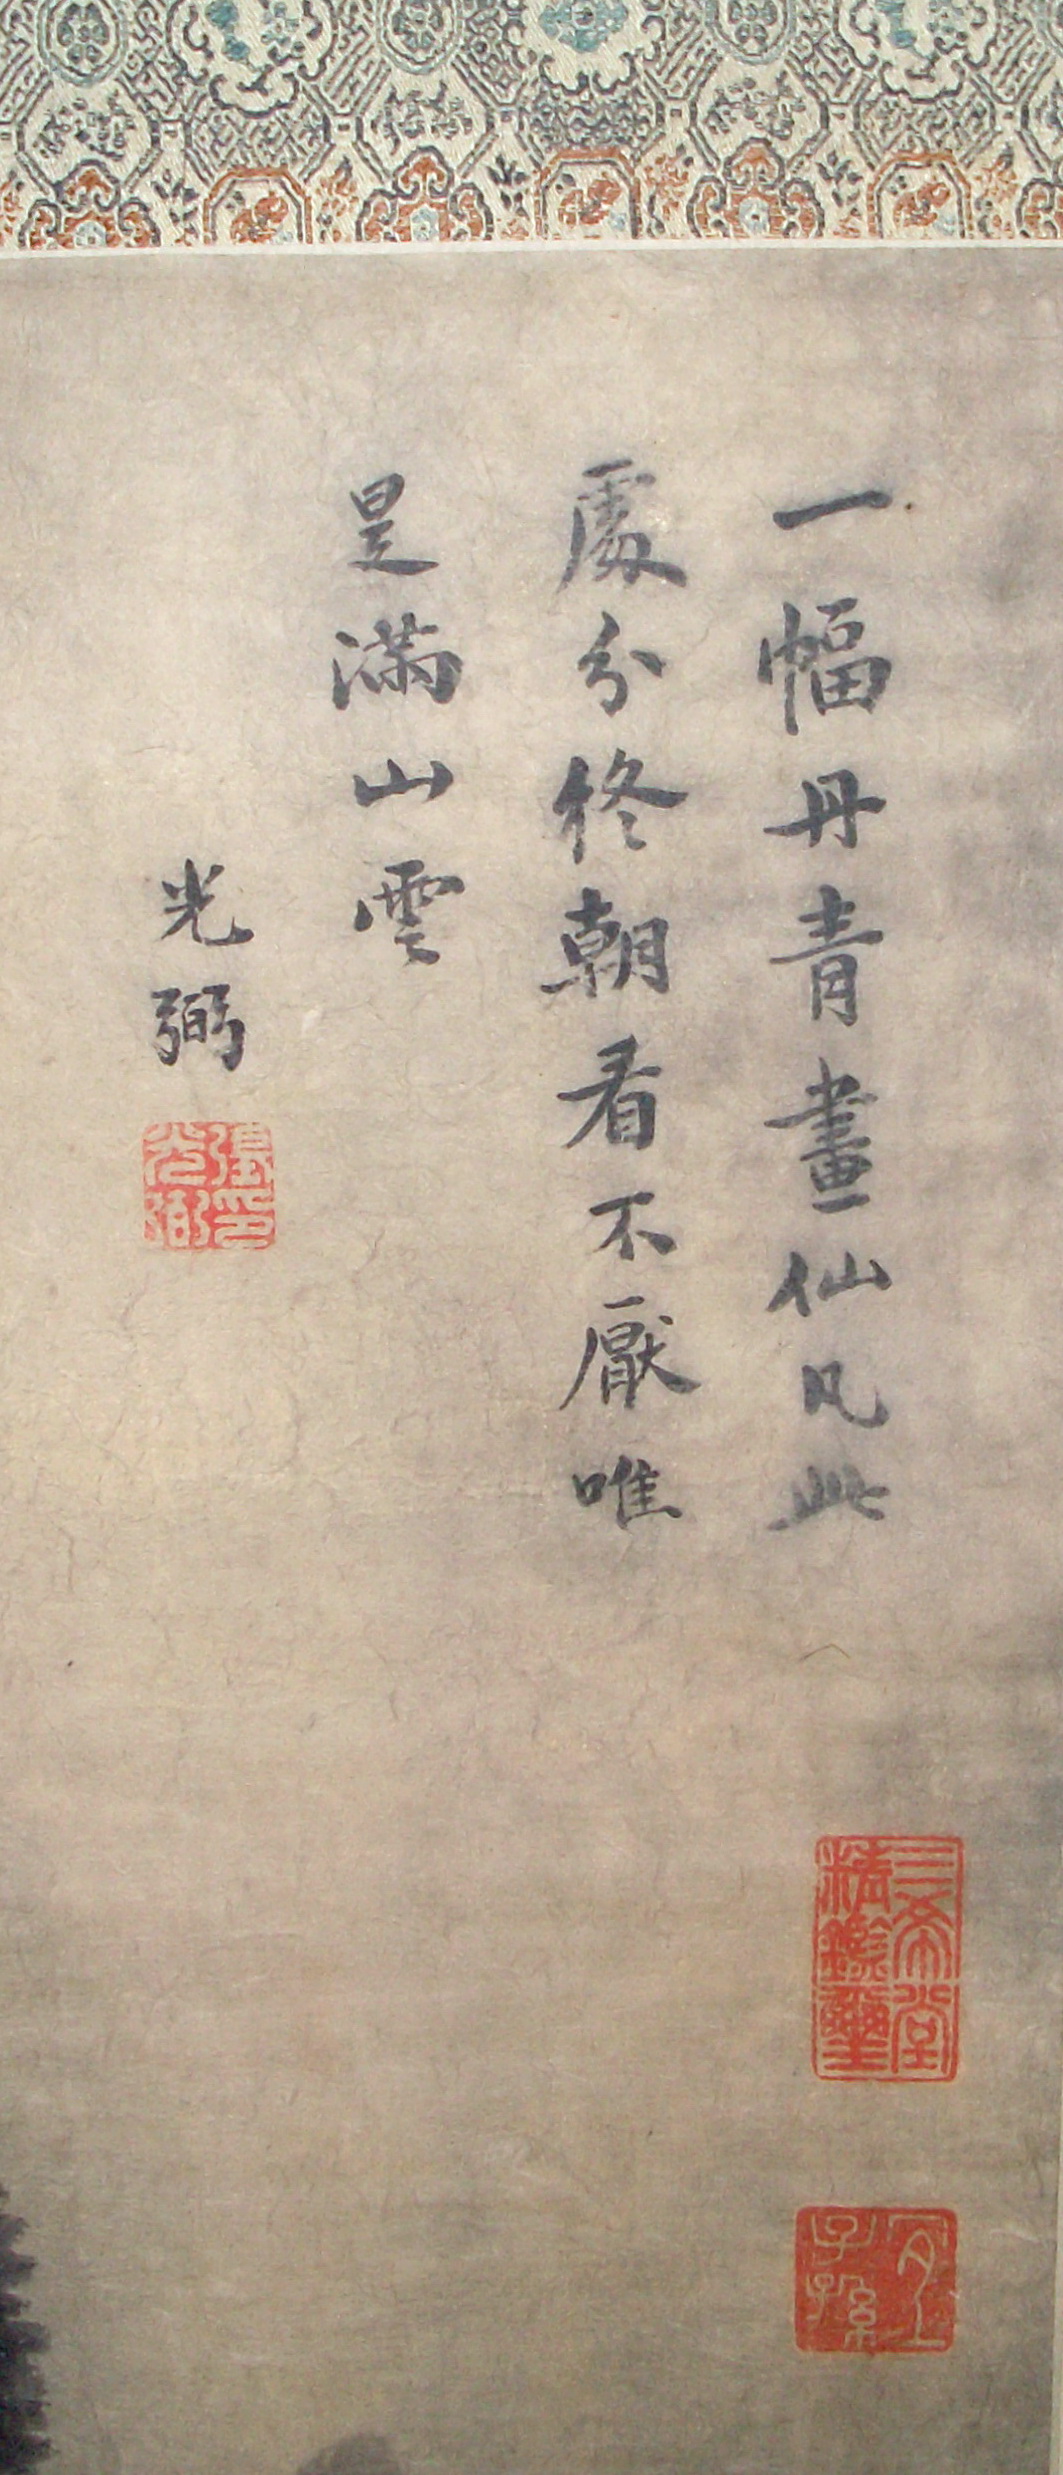 一幅丹青畫仙凡此
處分終朝看不厭唯
是滿山雲
光弼
張光弼印
三希堂精鑑璽
宜子孫